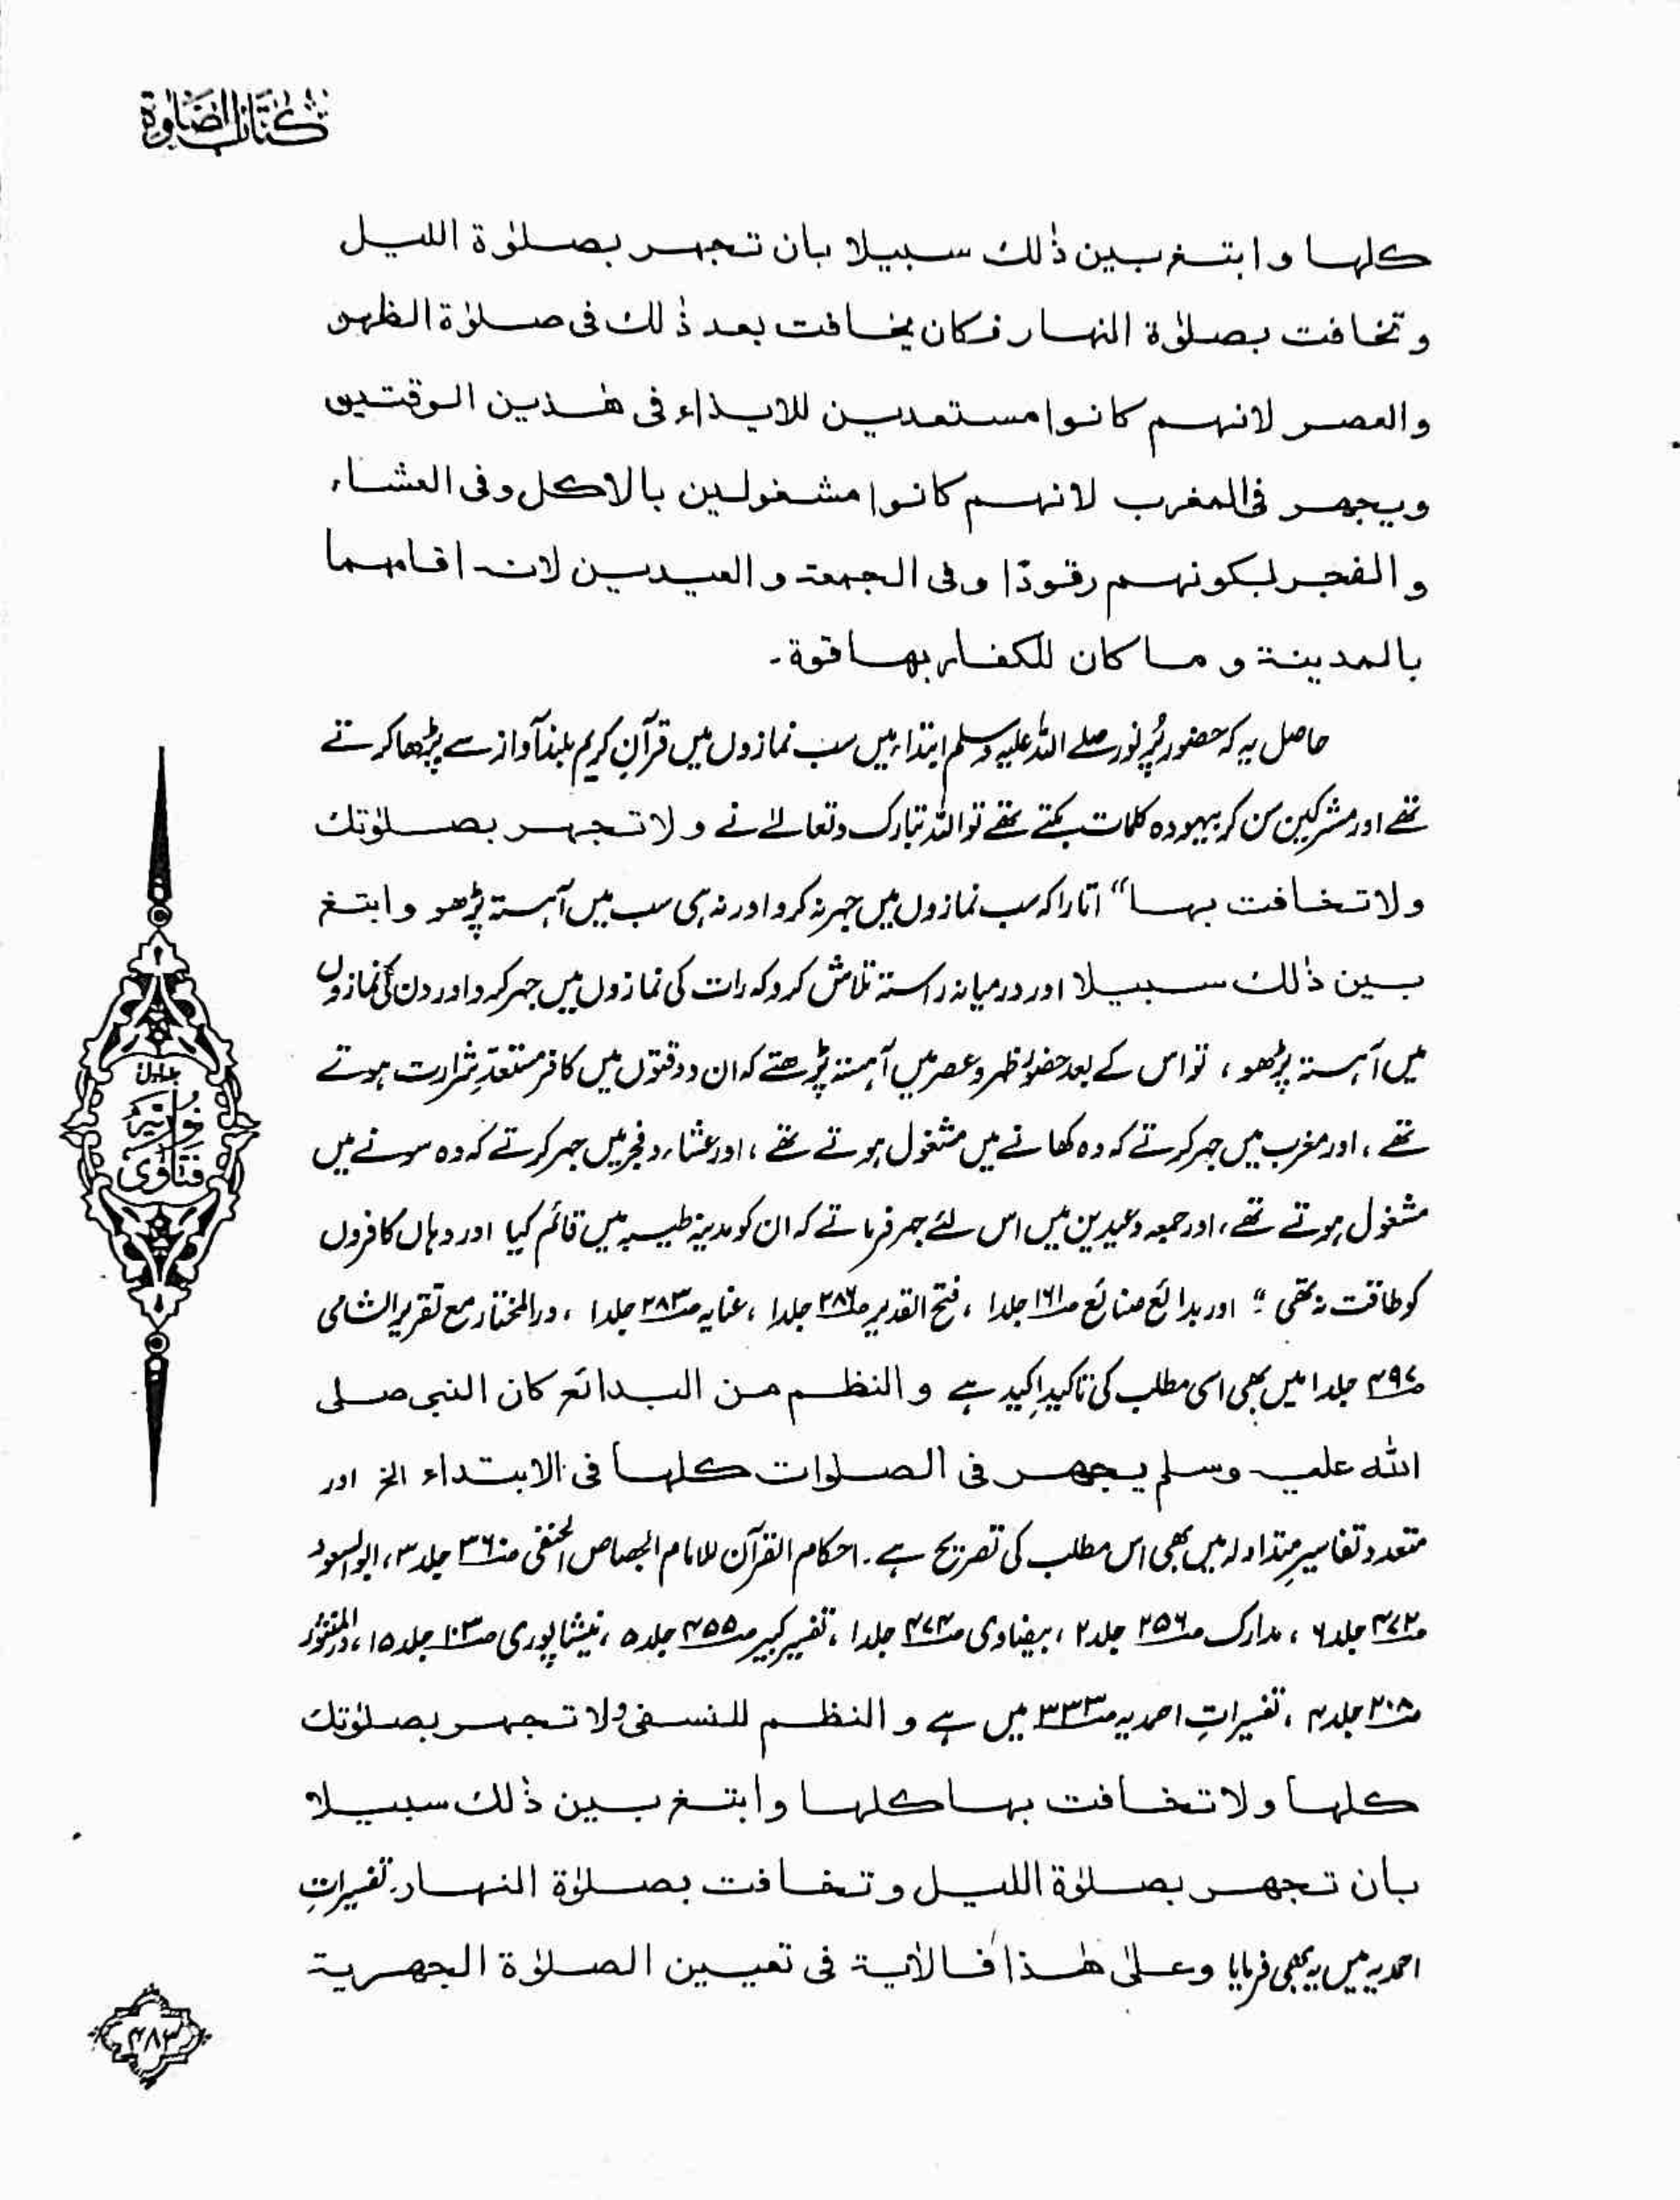 كتاب الصلوة
كلها و ابتغ بين ذٰلك سبيلا بان تجهر بصلوٰة الليل
و تخافت بصلوٰة النهار فكان يخافت بعد ذٰلك فى صلوٰة الظهر
و العصر لانهم كانوا مستعدين للايذاء فى هٰذين الوقتين
ويجهر فى المغرب لانهم كانوا مشغولين بالاكل وفى العشاء
و الفجر لكونهم رقودًا وفى الجمعة و العيدين لانه اقامهما
بالمدينة و ما كان للكفار بها قوة۔
حاصل یہ کہ حضور پُر نور صلے اللہ علیہ وسلم ابتداء میں سب نمازوں میں قرآنِ کریم بلند آواز سے پڑھا کرتے
تھے اور مشرکین سن کر بیہودہ کلمات بکتے تھے تو اللہ تبارک وتعالےٰ نے و لا تجهر بصلوٰتك
ولا تخافت بها“ اتارا کہ سب نمازوں میں جہر نہ کرو اور نہ ہی سب میں آہستہ پڑھو و ابتغ
بين ذٰلك سبيلا اور درمیانہ راستہ تلاش کرو کہ رات کی نمازوں میں جہر کرو اور دن کی نمازوں
میں آہستہ پڑھو ، تو اس کے بعد حضور ظہر و عصر میں آہستہ پڑھتے کہ ان دو وقتوں میں کافر مستعدِ شرارت ہوتے
تھے ، اور مغرب میں جہر کرتے کہ وہ کھانے میں مشغول ہوتے تھے ، اور عشاء و فجر میں جہر کرتے کہ وہ سونے میں
مشغول ہوتے تھے ، اور جمعہ و عیدین میں اس لئے جہر فرماتے کہ ان کو مدینہ طیبہ میں قائم کیا اور وہاں کافروں
کو طاقت نہ تھی ؛ اور بدائع صنائع ص۱۶۱ جلد۱ ، فتح القدیر ص۲۸۶ جلد۱ ، عنایہ ص۲۸۳ جلد۱ ، در المختار مع تقریر الشامی
ص۴۹۷ جلد۱ میں بھی اسی مطلب کی تاکیدِ اکید ہے و النظم من البدائع كان النبى صلى
الله عليه وسلم يجهر فى الصلوات كلها فى الابتداء الخ اور
متعدد تفاسیرِ متداولہ میں بھی اس مطلب کی تصریح ہے ۔ احکام القرآن للامام الجصاص الحنفی ص۳۶ جلد۳ ، ابو السعود
ص۴۷۲ جلد۶ ، مدارک ص۲۵۶ جلد۲ ، بیضاوی ص۴۷۴ جلد۱ ، تفسیر کبیر ص۴۵۵ جلد۵ ، نیشاپوری ص۱۰۳ جلد۱۵ ، در المنثور
ص۲۰۸ جلد۴ ، تفسیراتِ احمدیہ ص۳۳۳ میں ہے و النظم للنسفى ولا تجهر بصلوٰتك
كلها ولا تخافت بها كلها وابتغ بين ذٰلك سبيلا
بان تجهر بصلوٰة الليل و تخافت بصلوٰة النهار۔ تفسیراتِ
احمدیہ میں یہ بھی فرمایا وعلىٰ هٰذا فالاٰية فى تعيين الصلوٰة الجهرية
جلد اول
نوریہ
فتاوى
۴۸۳